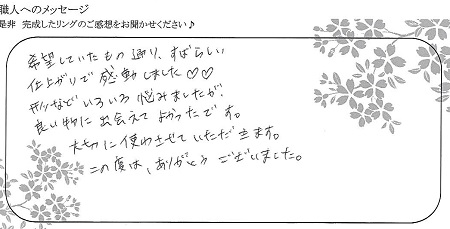 職人へのメッセージ
是非 完成したリングのご感想をお聞かせください♪
希望していたもの通り、すばらしい
仕上がりで感動しました♡♡
形などいろいろ悩みましたが、
良い物に出会えてよかったです。
大切に使わさせていただきます。
この度は、ありがとうございました。